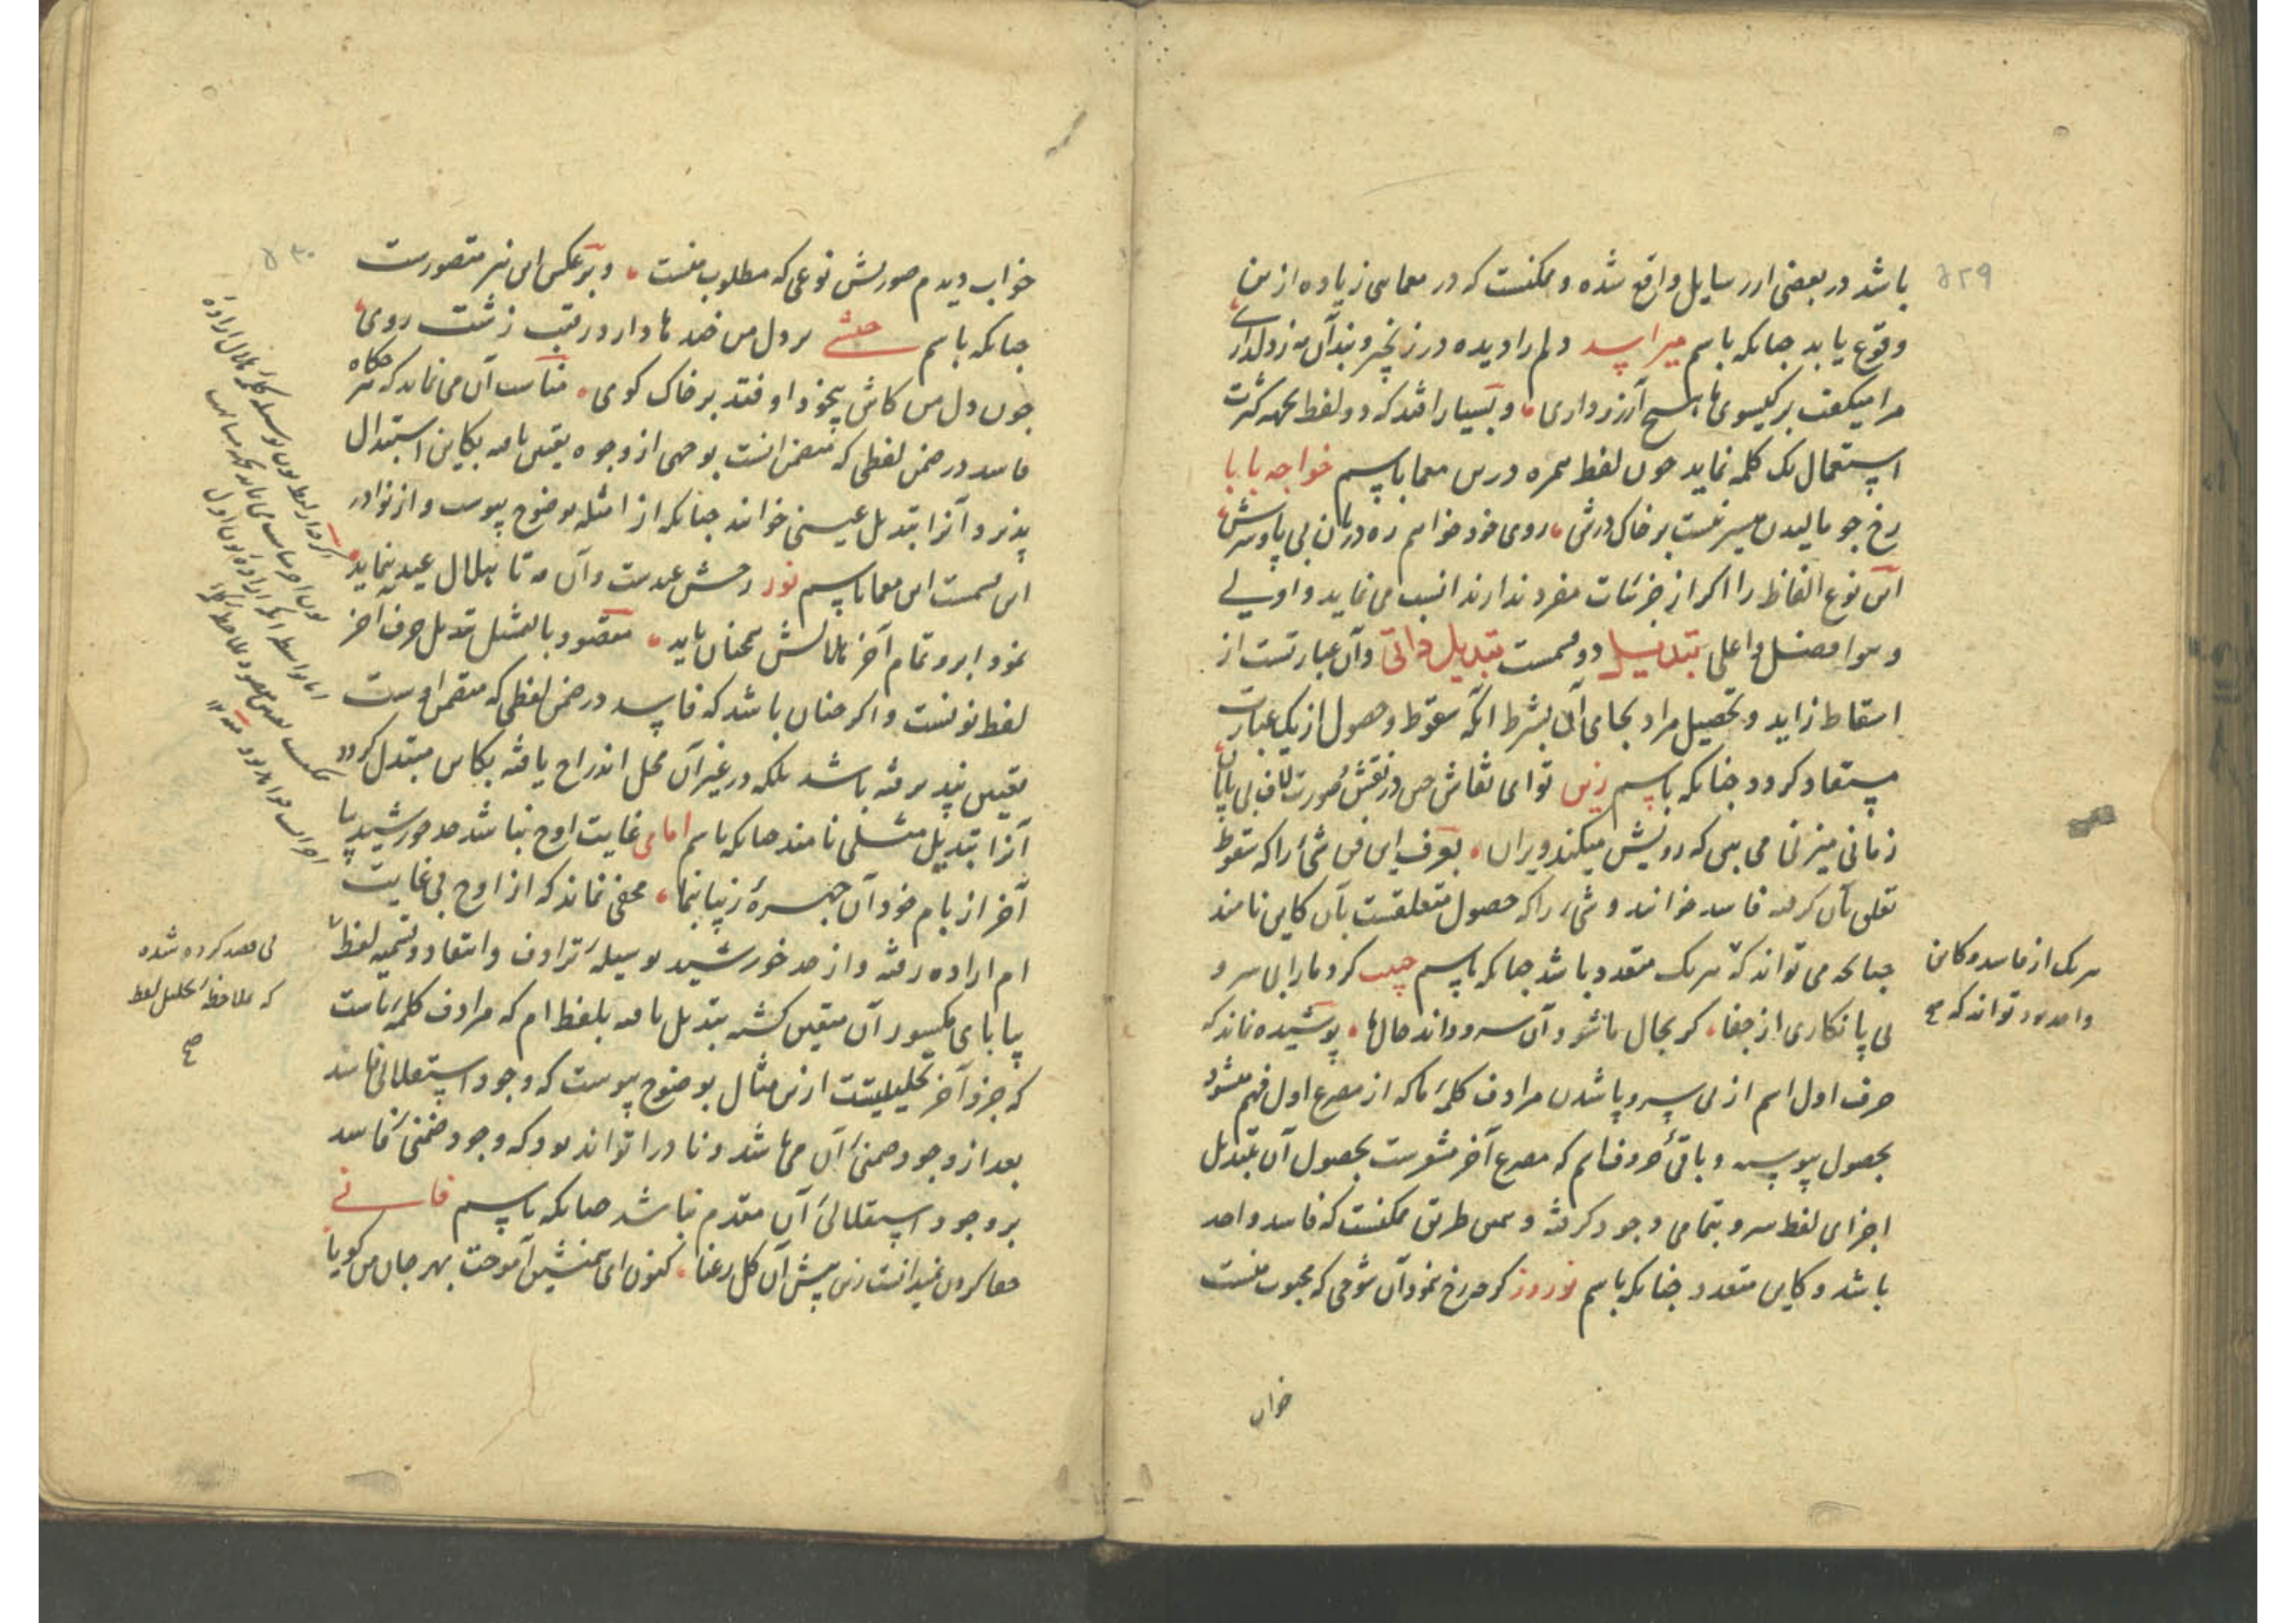 باشد در بعضی از رسایل واقع شده و ممکنست که در معمایی زیاده ازین
وقوع یابد چنانکه باسم میر اسد دلم را دیده در زنجیر و بند آن مه ز دلداری
مرا میگفت بر گیسوی ما هیچ آرزو داری و بسیار افتد که دو لفظ بجهة کثرت
استعمال یک کلمه نماید چون لفظ درین معما باسم خواجه بابا
رخ چو مالیدن میسر نیست بر خاک درش روی خود خواهم ره دربان بی پا و سرش
این نوع الفاظ را اگر از جزئیات مفرد ندارند انسب می نماید و اولی
و هو افضل و اعلی تبدیل دو قسمست تبدیل ذاتی و آن عبارتست از
اسقاط زاید و تحصیل مراد بجای آن بشرط آنکه سقوط و حصول از یک عبارت
مستفاد گردد چنانکه باسم زین تو ای نقاش چین در نقش صورت لاف بی پایان
زمانی میزنی می بین که رویش میکند ویران بعرف این فن شیء را که سقوط
تعلق بآن گرفته فاسد خوانند و شیء را که حصول متعلقست بآن کاین نامند
چنانچه می تواند که هر یک متعدد باشد چنانکه باسم حبیب کرد ما را بی سر و
بی پا نگاری از جفا گر بحال ما شود آن سرو داند حال ما پوشیده نماند که
حرف اول اسم از بی سر و پا شدن مرادف کلمهٔ ما که از مصرع اول فهم میشود
بحصول پیوسته و باقی حروف اسم که مصرع آخر مشعرست بحصول آن بتبدیل
اجزای لفظ سرو بتمامی وجود گرفته و بهمین طریق ممکنست که فاسد واحد
باشد و کاین متعدد چنانکه باسم نوروز گرچه رخ نمود آن شوخی که محبوب منست
خواب
هر یک از فاسد و کاین
واحد بود تواند که صح
۵۲۹
۵۳۰
خواب دیدم صورتش نوعی که مطلوب منست و برعکس این نیز متصورست
چنانکه باسم بر دل من خنده ها دارد رقیب زشت روی
چون دل من کاش بیخود اوفتد بر خاک کوی مناسب آن می نماید که هرگاه
فاسد در ضمن لفظی که متضمن آنست بوجهی از وجوه تعین یافته بکاین استبدال
پذیرد آنرا تبدیل عینی خوانند چنانکه از امثله بوضوح پیوست و از نوادر
این قسمست این معما باسم نور رخش عیدست و آن مه تا هلال عید بنماید
نمود ابرو تمام آخر هلالش همچنان باید مقصود بالتمثیل تبدیل حرف آخر
لفظ نونست و اگر چنان باشد که فاسد در ضمن لفظی که متضمن اوست
تعین نپذیرفته باشد بلکه در غیر آن محل اندراج یافته بکاین مبتدل گردد
آنرا تبدیل مثلی نامند چنانکه باسم امامی غایت اوج نباشد مه خورشید پیا
آخر از بام خود آن چهرهٔ زیبا بنما مخفی نماند که از اوج بی غایت
ام اراده رفته و از مه خورشید بوسیلهٔ ترادف و انتقاد و تسمیه لفظ
پیا بای مکسور آن متعین گشته بتبدیل یافته بلفظ ام که مرادف کلمهٔ باست
که جزو آخر تحلیلیست ازین مثال بوضوح پیوست که وجود استقلالی فاسد
بعد از وجود ضمنی آن می باشد و نادرا تواند بود که وجود ضمنی فاسد
بر وجود استقلالی آن مقدم باشد چنانکه باسم فانی
جفا کردن نمیدانست زین پیش آن گل رعنا کنون ای همنشین آموخت بهر جان من گویا
بی قصد کرده شده
که ملاحظهٔ تحلیل لفظ
صح